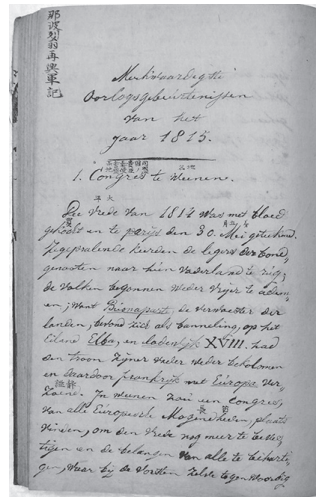 那波烈翁再興軍記
Merkwaardigste
Oorlogsgebeurtenissen
van het
jaar 1815.
1. Congres te Weenen.
De vrede van 1814 was met bloed
gekocht en te parijs den 30. Mei geteekend.
Zegepralende keerden de legers der bond
genooten naar hun vaderland te rug;
de volken begonnen weder vrijer te adem
en; want Buonaparte, de verwoester der
landen, bevond zich als banneling, op het
Eiland Elba, en lodewijk XVIII. had
den troon zijner vader weder bekomen
en daardoor frankrijk met Europa ver
zoenen. In weenen zou een congres,
van alle Europesche Mogendheden, plaats
vinden, om den vrede nog meer te beves
tigen en de belangen van alle te beharti
gen, waar bij de Vorsten zelve tegenwoordig